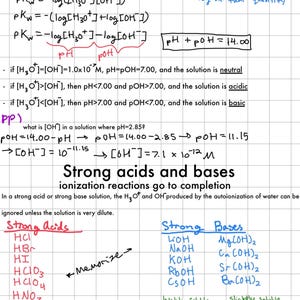 pKw = -(log[H₃O⁺]+log[OH⁻])
pKw = -log[H₃O⁺]-log[OH⁻]
pH pOH
pH + pOH = 14.00
- if [H₃O⁺]=[OH⁻]=1.0x10⁻⁷M, pH=pOH=7.00, and the solution is neutral
- if [H₃O⁺]>[OH⁻], then pH<7.00 and pOH>7.00, and the solution is acidic
- if [H₃O⁺]<[OH⁻], then pH>7.00 and pOH<7.00, and the solution is basic
PP)
what is [OH⁻] in a solution where pH=2.85?
pOH=14.00-pH → pOH=14.00-2.85 → pOH=11.15
→[OH⁻]=10⁻¹¹·¹⁵ → [OH⁻]=7.1 x10⁻¹²M
Strong acids and bases
ionization reactions go to completion
In a strong acid or strong base solution, the H₃O⁺ and OH⁻ produced by the autoionization of water can be
ignored unless the solution is very dilute.
Strong Acids Strong Bases
HCl LiOH Mg(OH)₂
HBr NaOH Ca(OH)₂
HI KOH Sr(OH)₂
HClO₃ RbOH Ba(OH)₂
HClO₄ CsOH
HNO₃
memorize